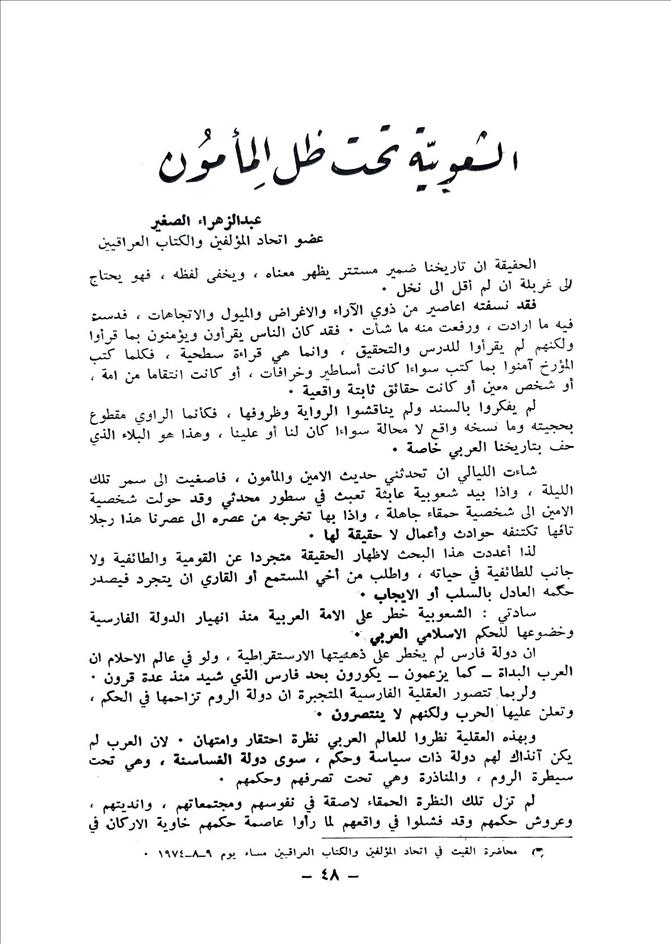 الشعوبيّة تحت ظل المأمُون
عبدالزهراء الصغير
عضو اتحاد المؤلفين والكتاب العراقيين
الحقيقة ان تاريخنا ضمير مستتر يظهر معناه ، ويخفى لفظه ، فهو يحتاج
الى غربلة ان لم أقل الى نخل ٠
فقد نسفته اعاصير من ذوي الآراء والاغراض والميول والاتجاهات ، فدست
فيه ما ارادت ، ورفعت منه ما شأت ٠ فقد كان الناس يقرأون ويؤمنون بما قرأوا
ولكنهم لم يقرأوا للدرس والتحقيق ، وانما هي قراءة سطحية ، فكلما كتب
المؤرخ آمنوا بما كتب سواءا كانت أساطير وخرافات ، أو كانت انتقاما من امة ،
أو شخص معين أو كانت حقائق ثابتة واقعية ٠
لم يفكروا بالسند ولم يناقشوا الرواية وظروفها ، فكأنما الراوي مقطوع
بحجيته وما نسخه واقع لا محالة سواءا كان لنا أو علينا ، وهذا هو البلاء الذي
حف بتاريخنا العربي خاصة ٠
شاءت الليالي ان تحدثني حديث الامين والمأمون ، فاصغيت الى سمر تلك
الليلة ، واذا بيد شعوبية عابثة تعبث في سطور محدثي وقد حولت شخصية
الامين الى شخصية حمقاء جاهلة ، واذا بها تخرجه من عصره الى عصرنا هذا رجلا
تافها تكتنفه حوادث وأعمال لا حقيقة لها ٠
لذا أعددت هذا البحث لاظهار الحقيقة متجردا عن القومية والطائفية ولا
جانب للطائفية في حياته ، واطلب من أخي المستمع أو القاري ان يتجرد فيصدر
حكمه العادل بالسلب أو الايجاب ٠
سادتي : الشعوبية خطر على الامة العربية منذ انهيار الدولة الفارسية
وخضوعها للحكم الاسلامي العربي ٠
ان دولة فارس لم يخطر على ذهنيتها الارستقراطية ، ولو في عالم الاحلام ان
العرب البداة ــ كما يزعمون ــ يكورون بحد فارس الذي شيد منذ عدة قرون ٠
ولربما تتصور العقلية الفارسية المتجبرة ان دولة الروم تزاحمها في الحكم ،
وتعلن عليها الحرب ولكنهم لا ينتصرون ٠
وبهذه العقلية نظروا للعالم العربي نظرة احتقار وامتهان ٠ لان العرب لم
يكن آنذاك لهم دولة ذات سياسة وحكم ، سوى دولة الغساسنة ، وهي تحت
سيطرة الروم ، والمناذرة وهي تحت تصرفهم وحكمهم ٠
لم تزل تلك النظرة الحمقاء لاصقة في نفوسهم ومجتمعاتهم ، وانديتهم ،
وعروش حكمهم وقد فشلوا في واقعهم لما رأوا عاصمة حكمهم خاوية الاركان في
(*) محاضرة القيت في اتحاد المؤلفين والكتاب العراقيين مساء يوم ٩ــ٨ــ١٩٧٤ ٠
ــ ٤٨ ــ